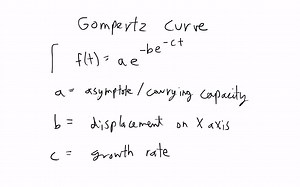 Gompertz Curve
f(t) = ae^{-be^{-ct}}
a = asymptote/carrying capacity
b = displacement on x axis
c = growth rate